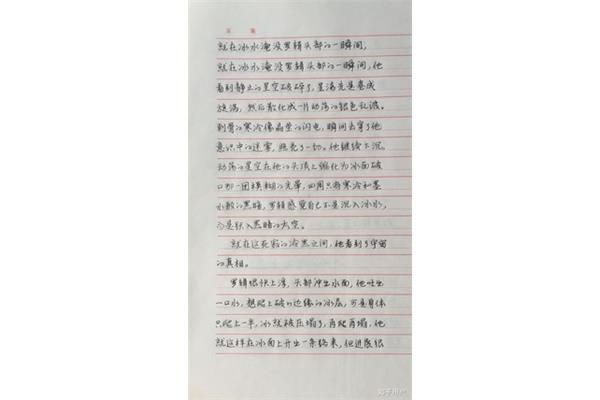 就在冰水淹没罗辑头部的一瞬间,
就在冰水淹没罗辑头部的一瞬间,他
看到静止的星空破碎了,星海先是卷成
旋涡,然后散化成一片动荡的银色乱波。
刺骨的寒冷像晶莹的闪电,瞬间击穿了他
意识中的迷雾,照亮了一切。他继续下沉。
动荡的星空在他的头顶上缩化为冰面破
口那一团模糊的光晕,四周只有寒冷和墨
水般的黑暗,罗辑感觉自己不是沉入冰水,
而是跃入黑暗的太空。
就在这死寂的冷黑之间,他看到了宇宙
的真相。
罗辑很快上浮,头部冲出水面,他吐出
一口水,想爬上破口边缘的冰层,可是身体
只爬上一半,冰就被压塌了,再爬再塌,他
就这样在冰面上开出一条路来,但进展很